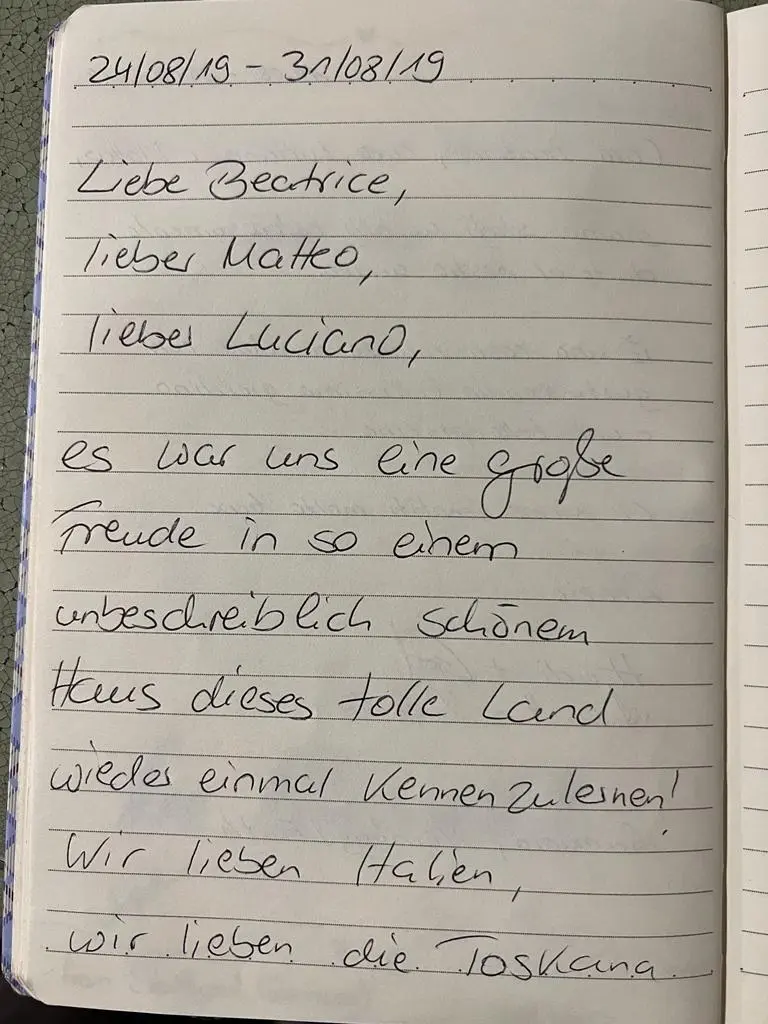 24/08/19 - 31/08/19
Liebe Beatrice,
lieber Matteo,
lieber Luciano,
es war uns eine große
Freude in so einem
unbeschreiblich schönem
Haus dieses tolle Land
wieder einmal kennenzulernen!
Wir lieben Italien,
wir lieben die Toskana